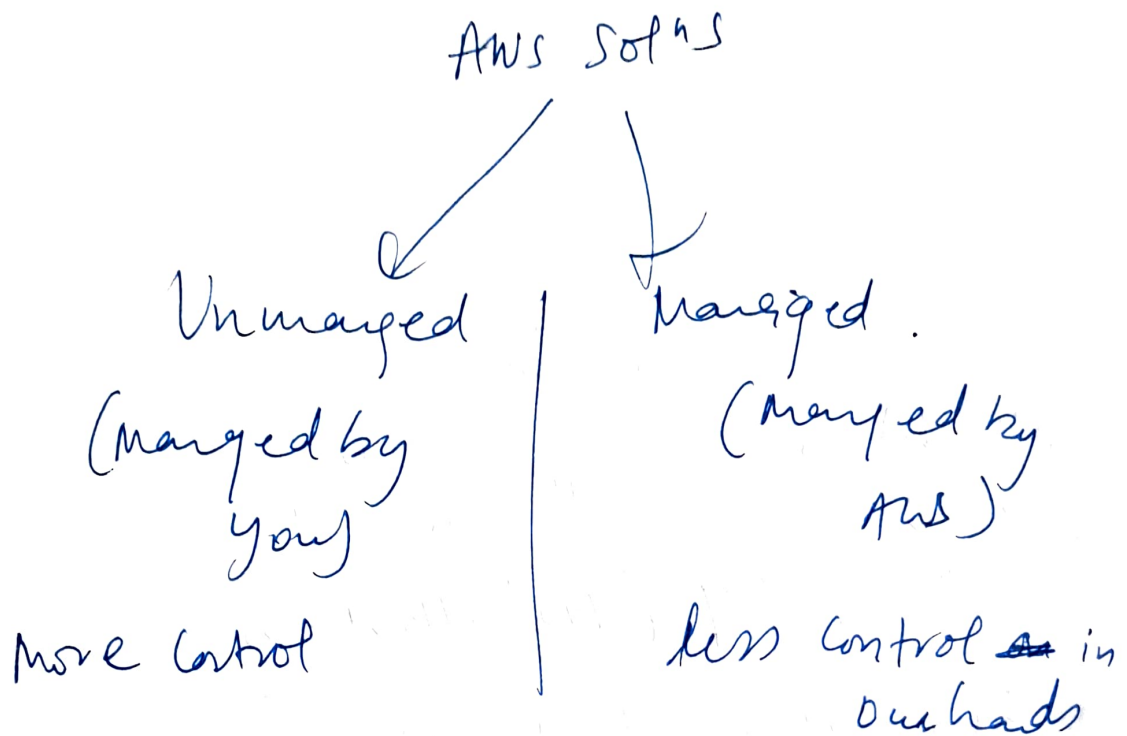 AWS Solⁿs
Unmanaged
(Managed by
you)
More Control
Managed.
(Managed by
AWS)
less control in
our hands